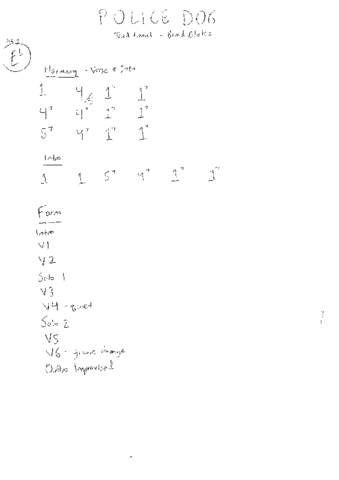 POLICE DOG
E♭
Harmony - Verse + Solo
1 4 1⁷ 1⁷
4⁷ 4⁷ 1⁷ 1⁷
5⁷ 4⁷ 1 1
Intro
1 1 5⁷ 4⁷ 1⁷ 1⁷
Form
Intro
V1
V2
Solo 1
V3
V4 - quiet
Solo 2
V5
V6 - groove change
Outro Improvised